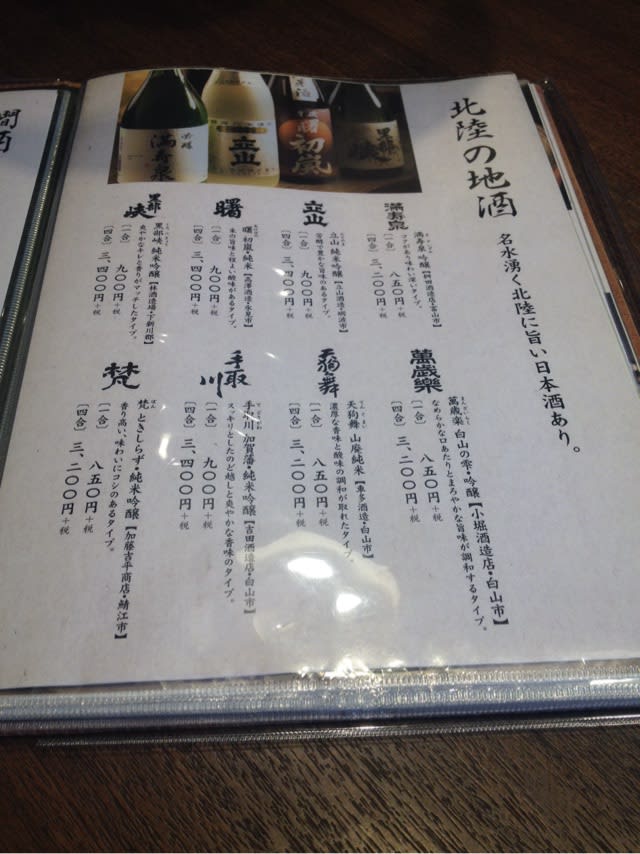 北陸の地酒
名水湧く北陸に旨い日本酒あり。
満寿泉
満寿泉 吟醸【桝田酒造店・富山市】
コクがあり味わい深いタイプ。
【一合】 八五〇円+税
【四合】 三、二〇〇円+税
立山
立山 純米吟醸【立山酒造・砺波市】
芳醇で豊かな旨味のあるタイプ。
【一合】 九〇〇円+税
【四合】 三、四〇〇円+税
曙
曙 初嵐 純米【高澤酒造・氷見市】
米の旨味と程よい酸味があるタイプ。
【一合】 九〇〇円+税
【四合】 三、四〇〇円+税
黒部峡
黒部峡 純米吟醸【林酒造場・下新川郡】
爽やかなキレと香りがマッチしたタイプ。
【一合】 九〇〇円+税
【四合】 三、四〇〇円+税
萬歳樂
萬歳楽 白山の雫・吟醸【小堀酒造店・白山市】
なめらかな口あたりとまろやかな旨味が調和するタイプ。
【一合】 八五〇円+税
【四合】 三、二〇〇円+税
天狗舞
天狗舞 山廃純米【車多酒造・白山市】
濃厚な香味と酸味の調和が取れたタイプ。
【一合】 八五〇円+税
【四合】 三、二〇〇円+税
手取川
手取川 加賀藩・純米吟醸【吉田酒造店・白山市】
スッキリとしたのど越しと爽やかな香味のタイプ。
【一合】 九〇〇円+税
【四合】 三、四〇〇円+税
梵
梵 ときしらず・純米吟醸【加藤吉平商店・鯖江市】
香り高い、味わいにコシのあるタイプ。
【一合】 八五〇円+税
【四合】 三、二〇〇円+税
吟醸
満寿泉
立山
初嵐
黒部峡